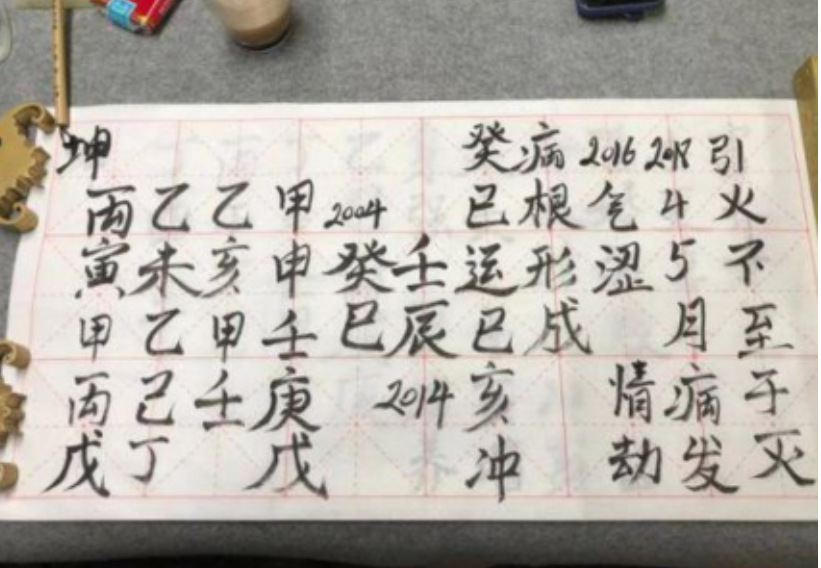 坤 癸病 2016 2017 引
丙乙乙甲 2004 巳根气4火
寅未亥申癸壬运形涩5不
甲乙甲壬巳辰巳成 月至
丙己壬庚 2014 亥 情病于
戊丁 戊 冲 劫发灭